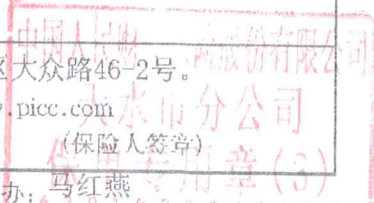 中国人民财 险股份有限公司
区大众路46-2号。
.picc.com
天水市分公司
(保险人签章)
专用章(3)
办: 马红燕